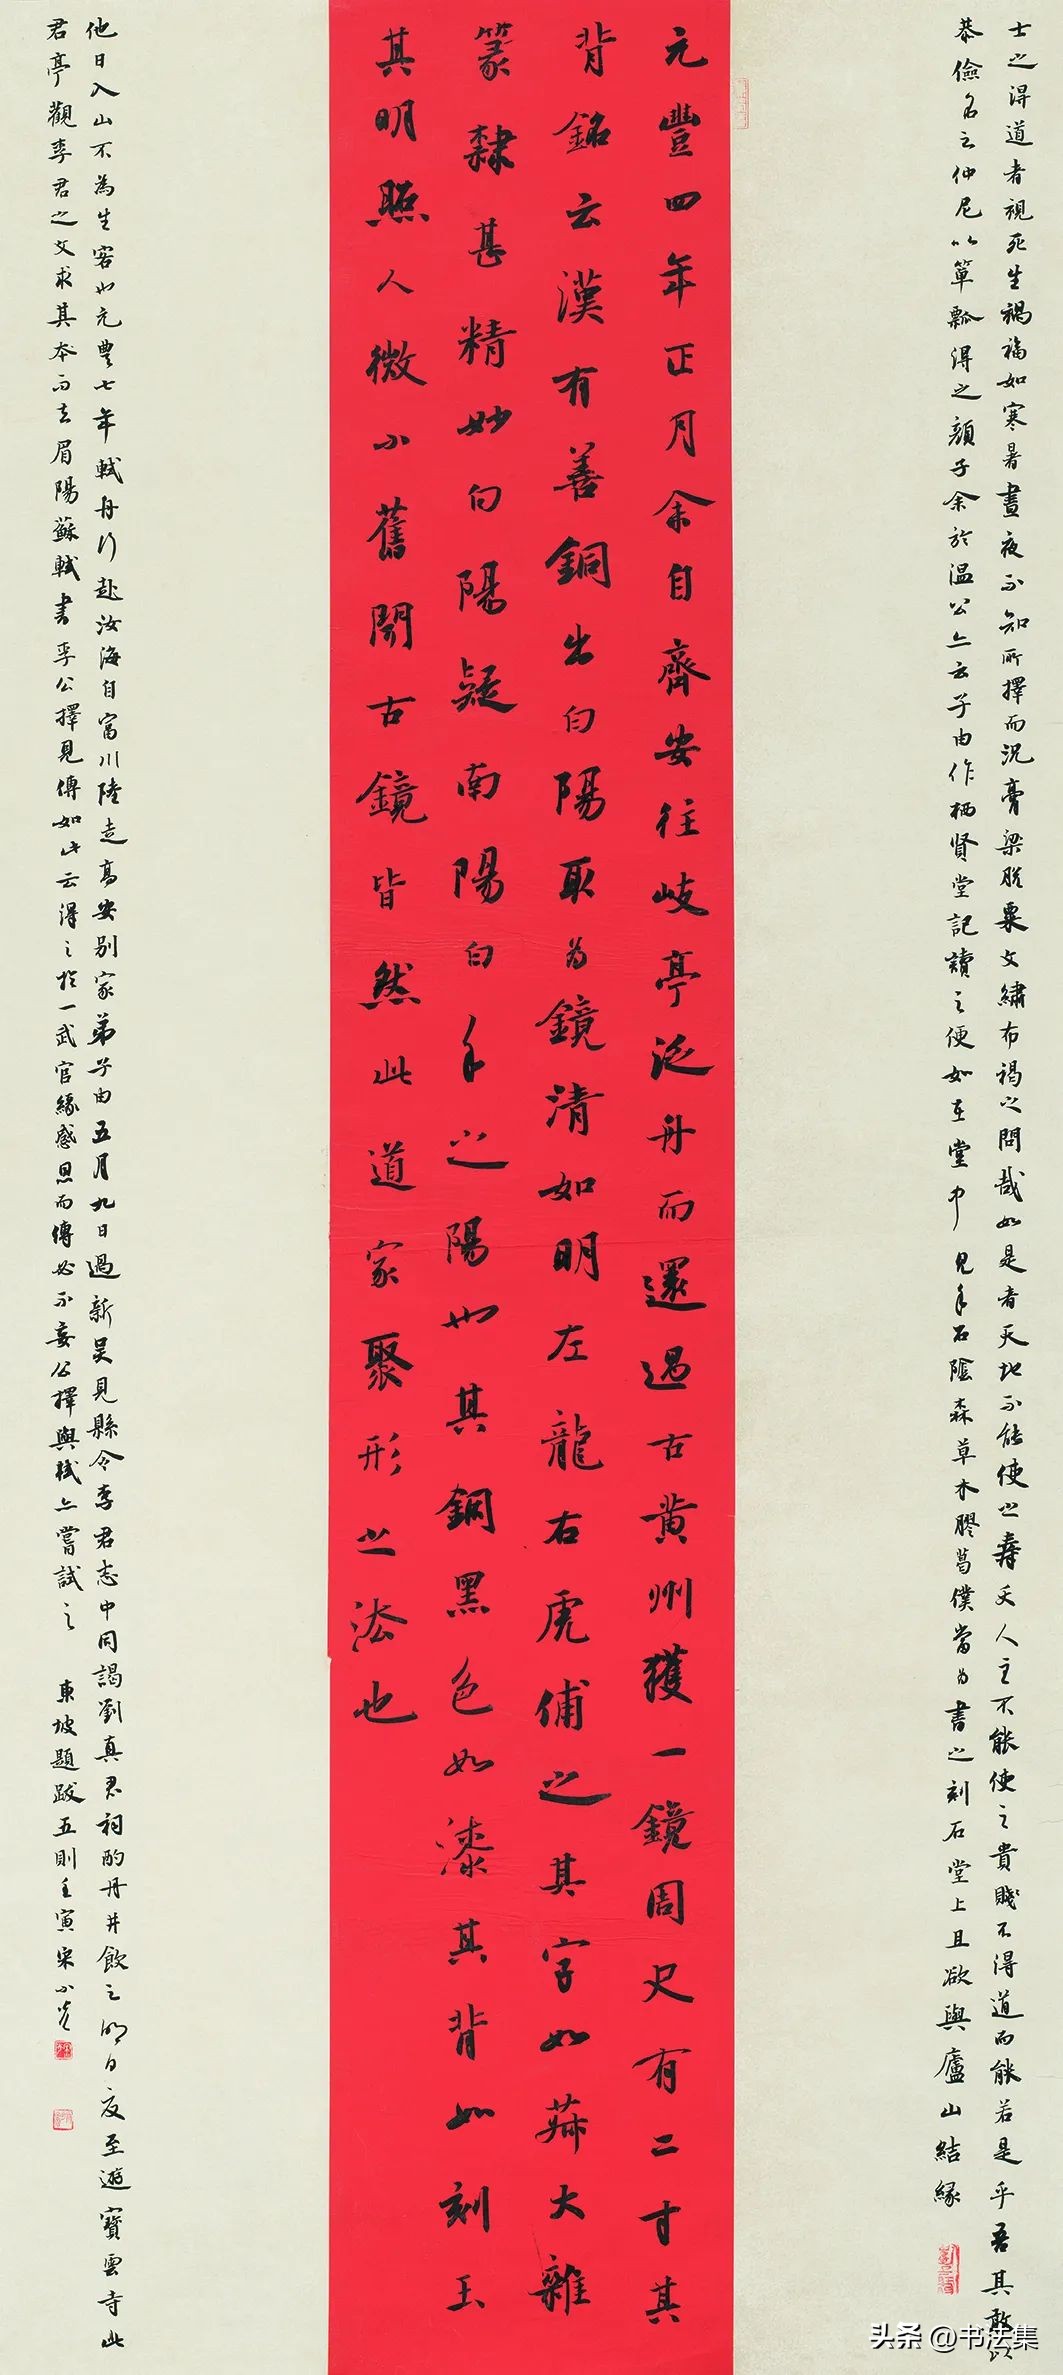 士之得道者視死生禍福如寒暑晝夜不知所擇而況膏粱脫粟文繡布褐之間哉如是者天地不能使之壽夭人主不能使之貴賤不得道而能若是乎吾其敢以
恭儉名之仲尼以簞瓢得之顏子余於温公亦云子由作栖賢堂記讀之便如在堂中見水石陰森草木膠葛僕當為書之刻石堂上且欲與廬山結緣
元豐四年正月余自齊安往岐亭泛舟而還過古黄州獲一鏡周尺有二寸其
背銘云漢有善銅出白陽取為鏡清如明左龍右虎俌之其字如菽大雜
篆隸甚精妙白陽疑南陽白水之陽也其銅黑色如漆其背如刻玉
其明照人微小舊聞古鏡皆然此道家聚形之法也
他日入山不為生客也元豐七年軾舟行赴汝海自富川陸走高安别家弟子由五月九日過新吴見縣令李君志中同謁劉真君祠酌丹井飲之明日夜至遊寶雲寺此
君亭觀李君之文求其本而去眉陽蘇軾書李公擇見傳如此云得之於一武官緣感恩而傳必不妄公擇與軾亦嘗試之 東坡題跋五則壬寅宋小光
头条 @书法集